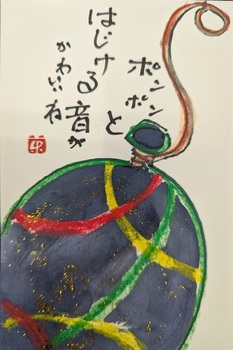 ポンポンと
はじける音が
かわいいね